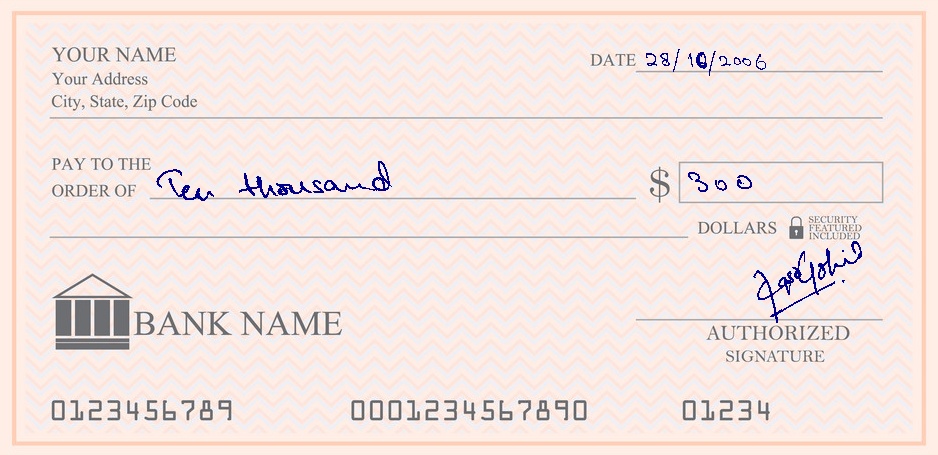 YOUR NAME
Your Address
City, State, Zip Code
DATE 28/10/2006
PAY TO THE
ORDER OF Ten thousand
$ 300
DOLLARS
SECURITY
FEATURED
INCLUDED
BANK NAME
AUTHORIZED
SIGNATURE
0123456789 0001234567890 01234